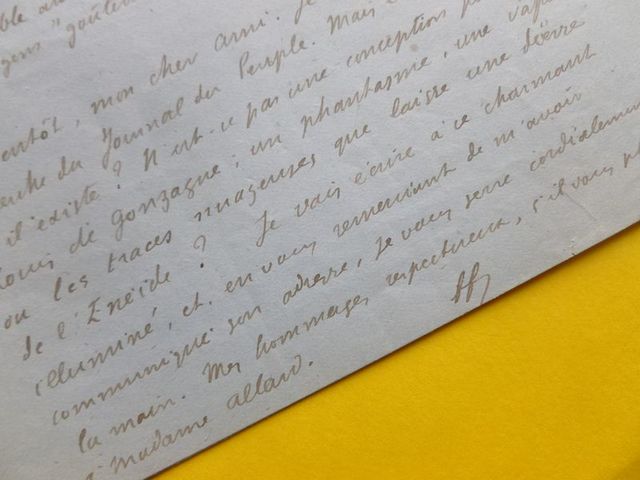 gens "goûter
entôt, mon cher ami. Je
du Journal du Peuple. Mais
il existe ? N'est-ce pas une conception
Louis de Gonzague, un phantasme, une
ou les traces nuageuses que laisse une
de l'Enéide ? Je vais écrire à ce charmant
illuminé, et, en vous remerciant de m'avoir
communiqué son adresse, je vous serre cordialement
la main. Mes hommages respectueux, s'il vous
à Madame Allard.